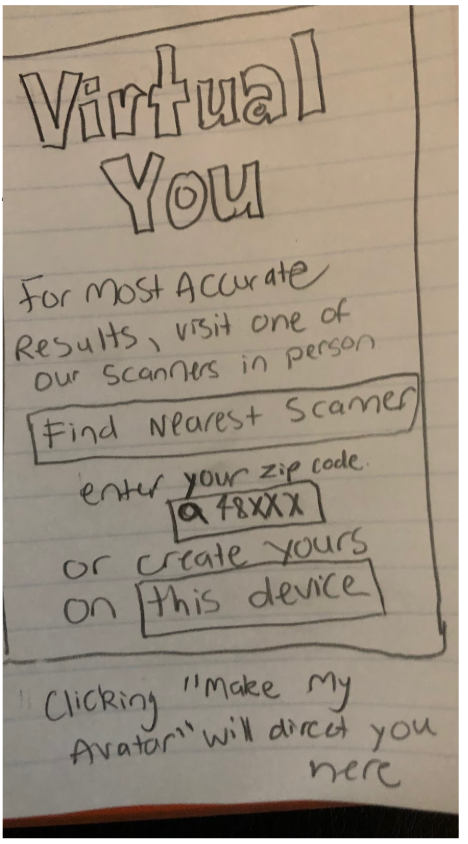 Virtual
You
For Most Accurate
Results, visit one of
our scanners in person
Find Nearest Scanner
enter your zip code.
48XXX
or create yours
on this device
Clicking "Make My
Avatar" will direct you
here